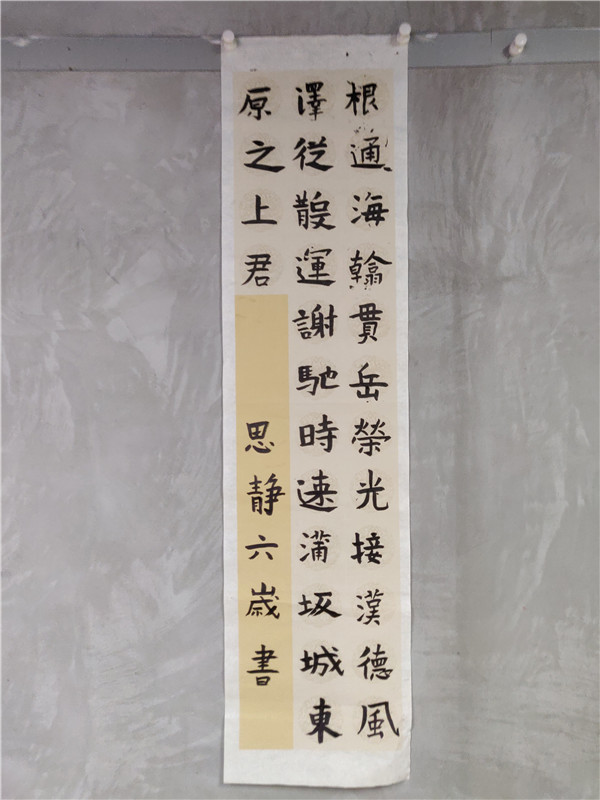 根通海翰貫岳榮光接漢德風
澤從散運謝馳時速蒲坂城東
原之上君
思静六歲書